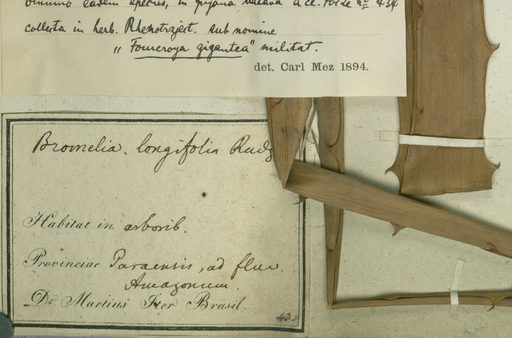 omnino eadem species, in guyana
collecta in herb. Rhenotraject. sub nomine
„ Fourcroya gigantea" militat.
det. Carl Mez 1894.
Bromelia longifolia Rudg
Habitat in arborib.
Provinciae Paraensis, ad fluv.
Amazonum.
Dr Martius Iter Brasil.
43.